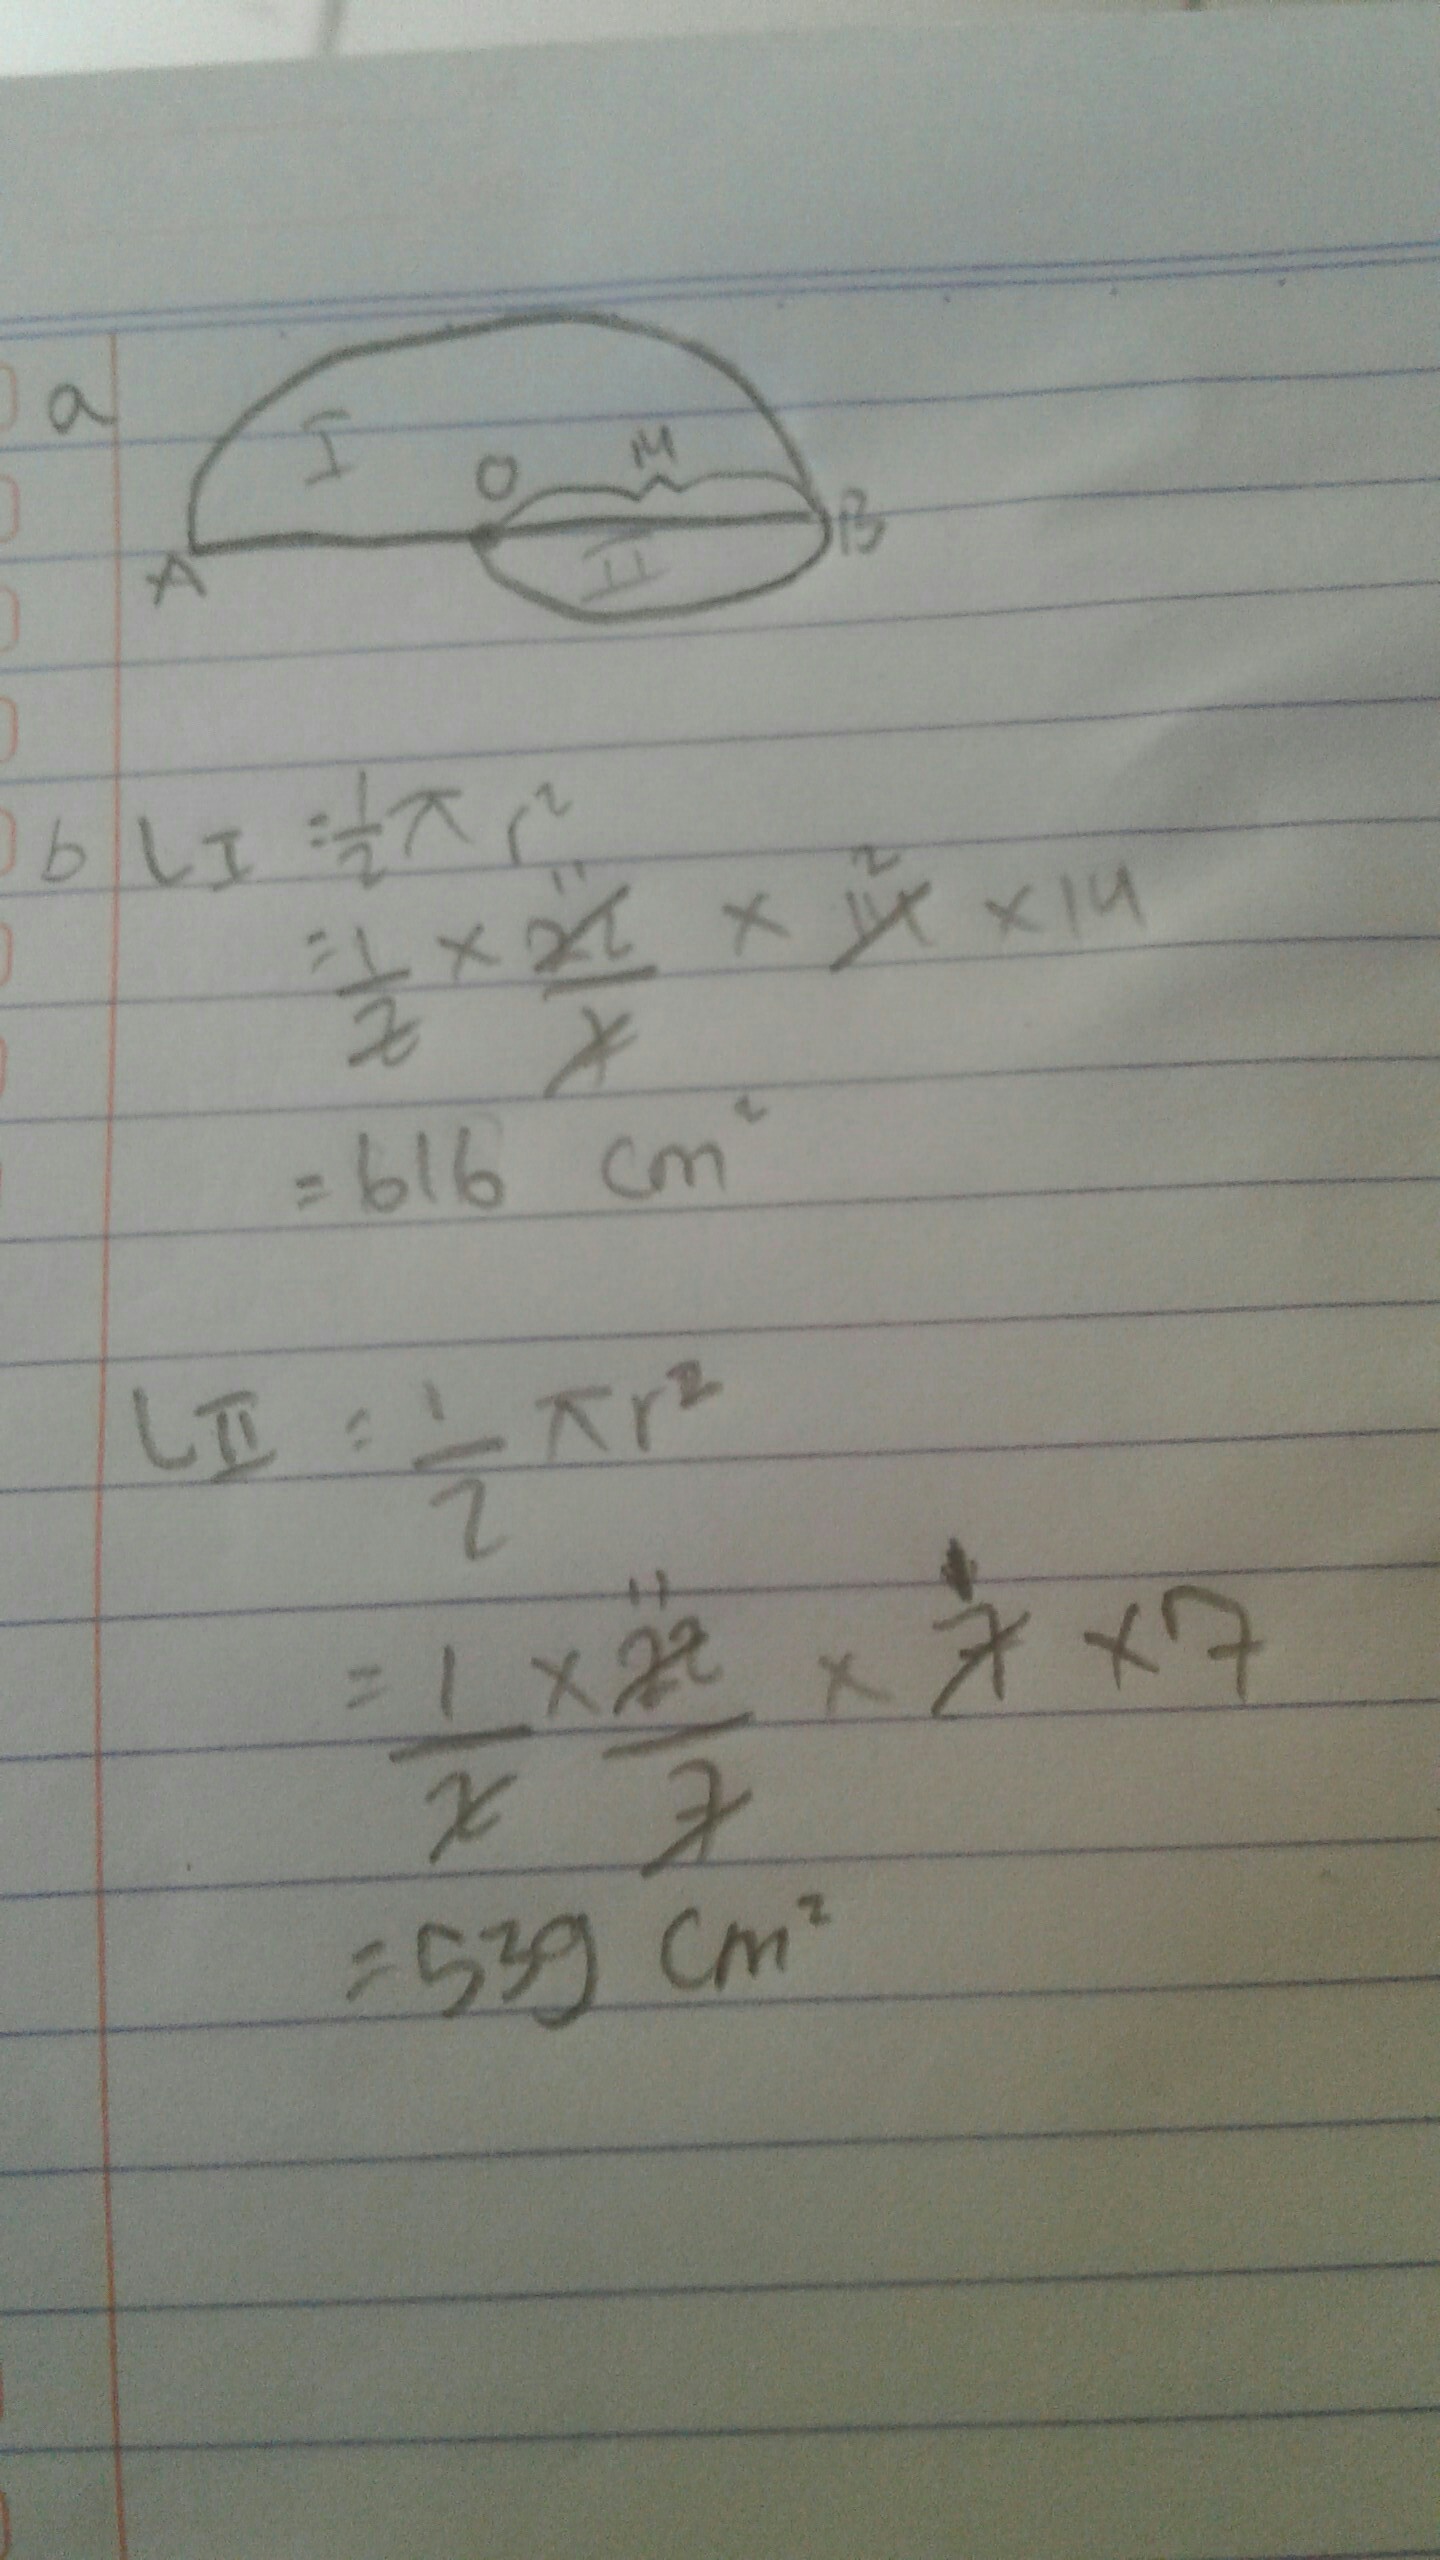 a
I
O
14
A
II
B
b LI = 1/2 π r²
11 2
= 1/2 × 22/7 × 14 × 14
= 616 cm²
LII = 1/2 π r²
11 1
= 1/2 × 22/7 × 7 × 7
= 539 cm²